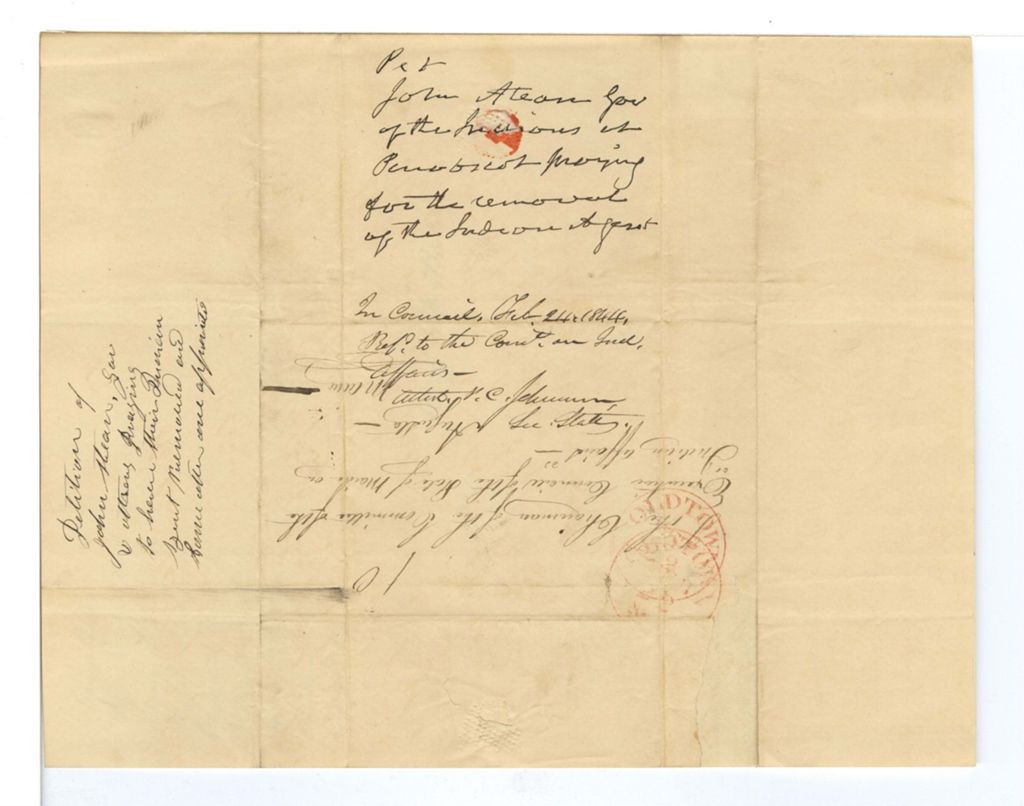 Pet
John Atean Gov
of the Indians at
Penobscot praying
for the removal
of the Indian Agent
In Council, Feb. 24. 1844.
Ref. to the Comt. on Ind.
Affairs—
Attest, P. C. Johnson,
Sec. State,
Petition of
John Atean, Gov
& others Praying
to have their Indian
Agent Removed and
Some other one appointed
To the Chairman of the Committee of the
Executive Council of the State of Maine on
Indian affairs—
Augusta—
Maine
10
OLDTOWN